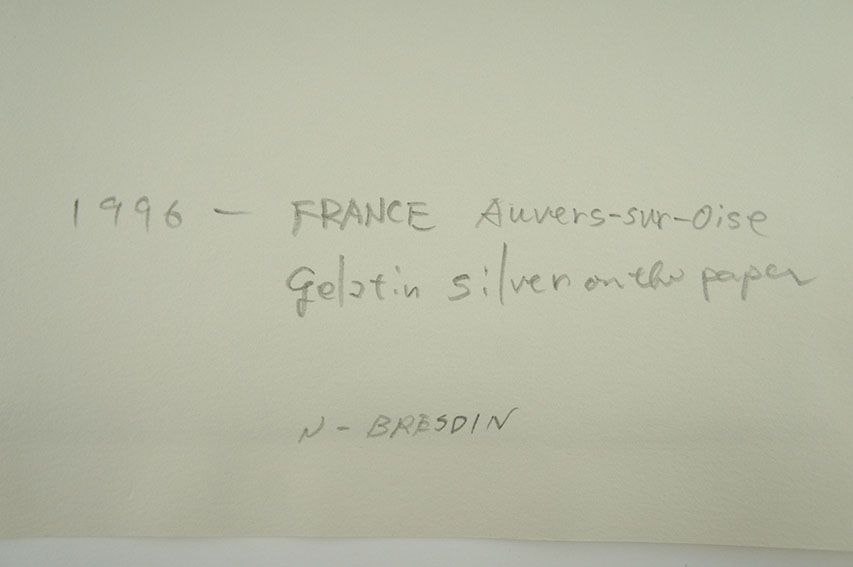 1996 - FRANCE Auvers-sur-Oise
Gelatin silver on the paper
N - BRESDIN